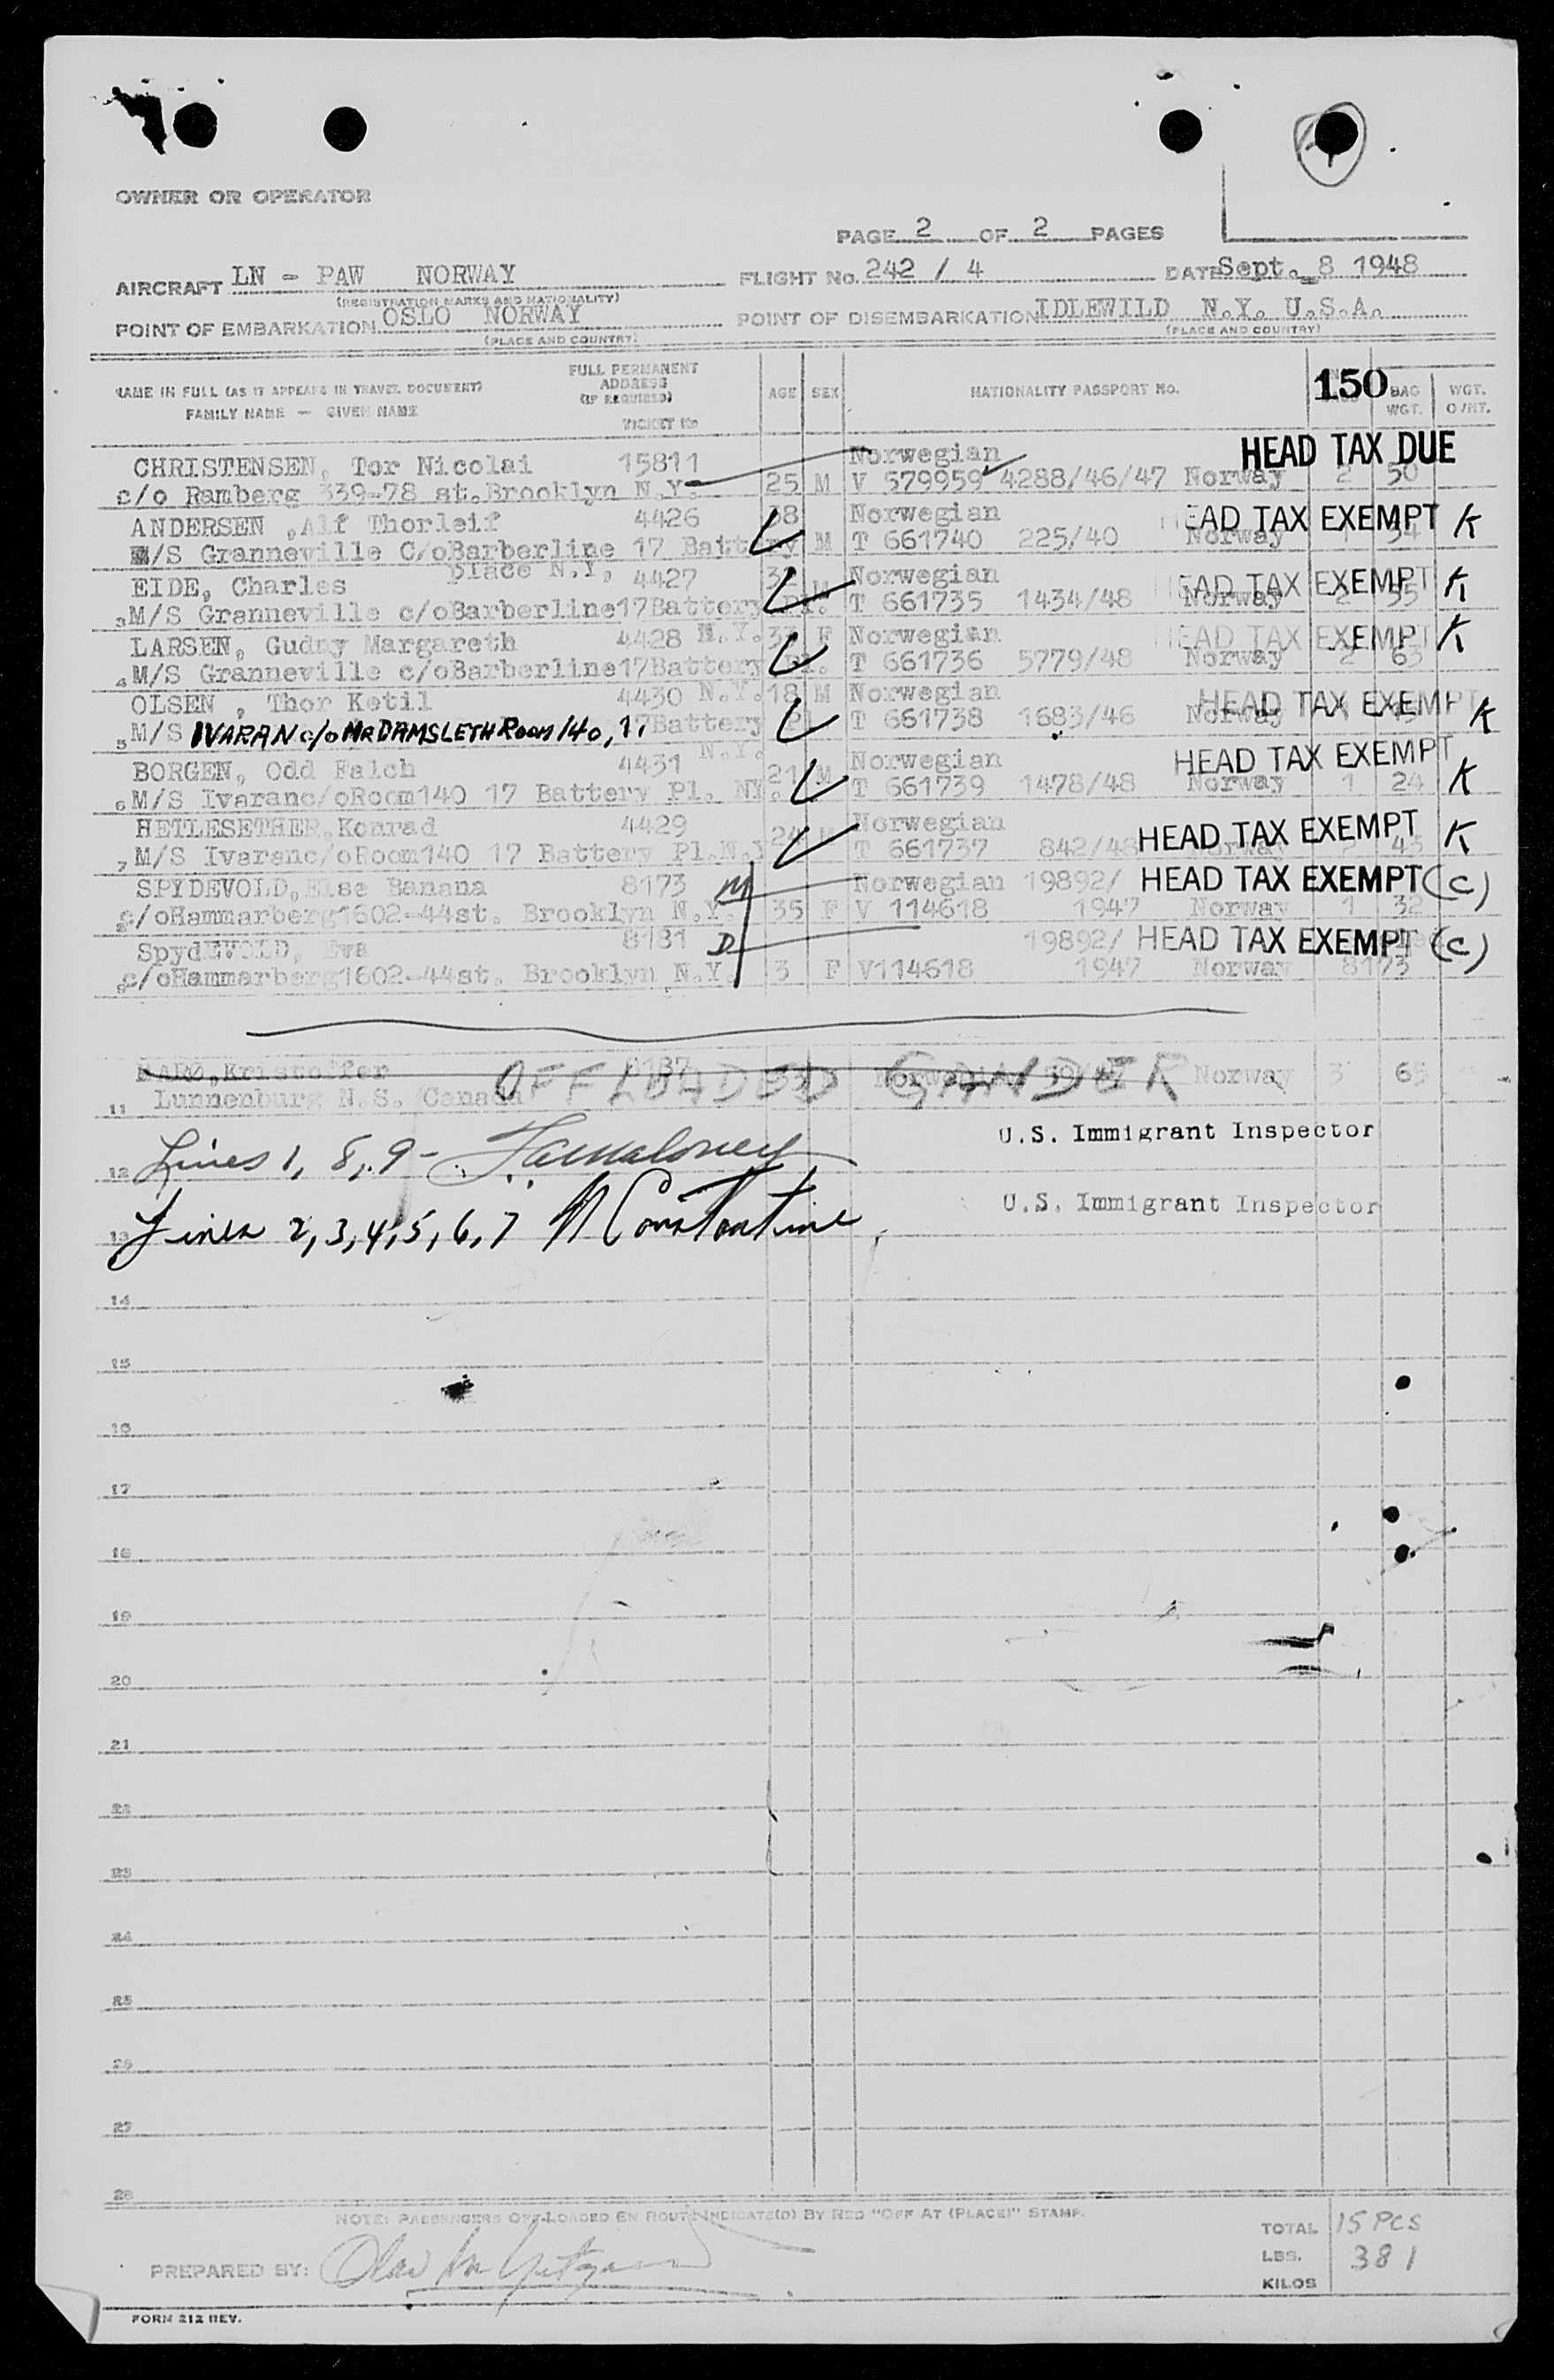 OWNER OR OPERATOR
PAGE 2 OF 2 PAGES
AIRCRAFT LN - PAW NORWAY FLIGHT No. 242 / 4 DATE Sept. 8 1948
(REGISTRATION MARKS AND NATIONALITY)
POINT OF EMBARKATION OSLO NORWAY POINT OF DISEMBARKATION IDLEWILD N.Y. U.S.A.
(PLACE AND COUNTRY) (PLACE AND COUNTRY)
NAME IN FULL (AS IT APPEARS IN TRAVEL DOCUMENT)
FAMILY NAME — GIVEN NAME
FULL PERMANENT
ADDRESS
(IF REQUIRED)
TICKET No
AGE SEX NATIONALITY PASSPORT NO. 150 BAG WGT. WGT. O/NT.
CHRISTENSEN, Tor Nicolai 15811 Norwegian HEAD TAX DUE
c/o Ramberg 339-78 st. Brooklyn N.Y. 25 M V 579959 4288/46/47 Norway 2 50
ANDERSEN ,Alf Thorleif 4426 38 Norwegian HEAD TAX EXEMPT K
M/S Granneville C/oBarberline 17 Battery M T 661740 225/40 Norway 1 54
place N.Y.
EIDE, Charles 4427 32 M Norwegian HEAD TAX EXEMPT K
3 M/S Granneville c/oBarberline17Battery Pl. T 661735 1434/48 Norway 2 55
LARSEN, Gudny Margareth 4428 N.Y. 33 F Norwegian HEAD TAX EXEMPT K
4 M/S Granneville c/oBarberline17Battery Pl. T 661736 5779/48 Norway 2 63
OLSEN , Thor Ketil 4430 N.Y. 18 M Norwegian HEAD TAX EXEMPT K
5 M/S IVARAN c/o MR DAMSLETH ROOM 140, 17 Battery Pl T 661738 1683/46 Norway
N.Y.
BORGEN, Odd Falch 4431 21 M Norwegian HEAD TAX EXEMPT
6 M/S Ivaranc/oRoom140 17 Battery Pl. NY. T 661739 1478/48 Norway 1 24 K
HETLESETHER,Konrad 4429 24 Norwegian
7 M/S Ivaranc/oRoom140 17 Battery Pl.N.Y T 661737 842/48 HEAD TAX EXEMPT K Norway 43
SPYDEVOLD,Else Banana 8173 M Norwegian 19892/ HEAD TAX EXEMPT (C)
c/oHammarberg1602-44st. Brooklyn N.Y. 35 F V 114618 1947 Norway 1 32
SpydEVOLD, Eva 8181 D 19892/ HEAD TAX EXEMPT (C)
9 c/oHammarberg1602-44st. Brooklyn N.Y. 3 F V114618 1947 Norway 8173
Kristoffer OFFLOADED GANDER Norway 3 65
11 Lunnenburg N.S. Canada
U.S. Immigrant Inspector
12 Lines 1, 8, 9 -
U.S. Immigrant Inspector
13 Lines 2, 3, 4, 5, 6, 7 N Constantine
14
15
16
17
18
19
20
21
22
23
24
25
26
27
28
NOTE: PASSENGERS OFF-LOADED EN ROUTE INDICATE(D) BY RED "OFF AT (PLACE)" STAMP.
TOTAL 15 PCS
LBS. 381
KILOS
PREPARED BY:
FORM 212 REV.